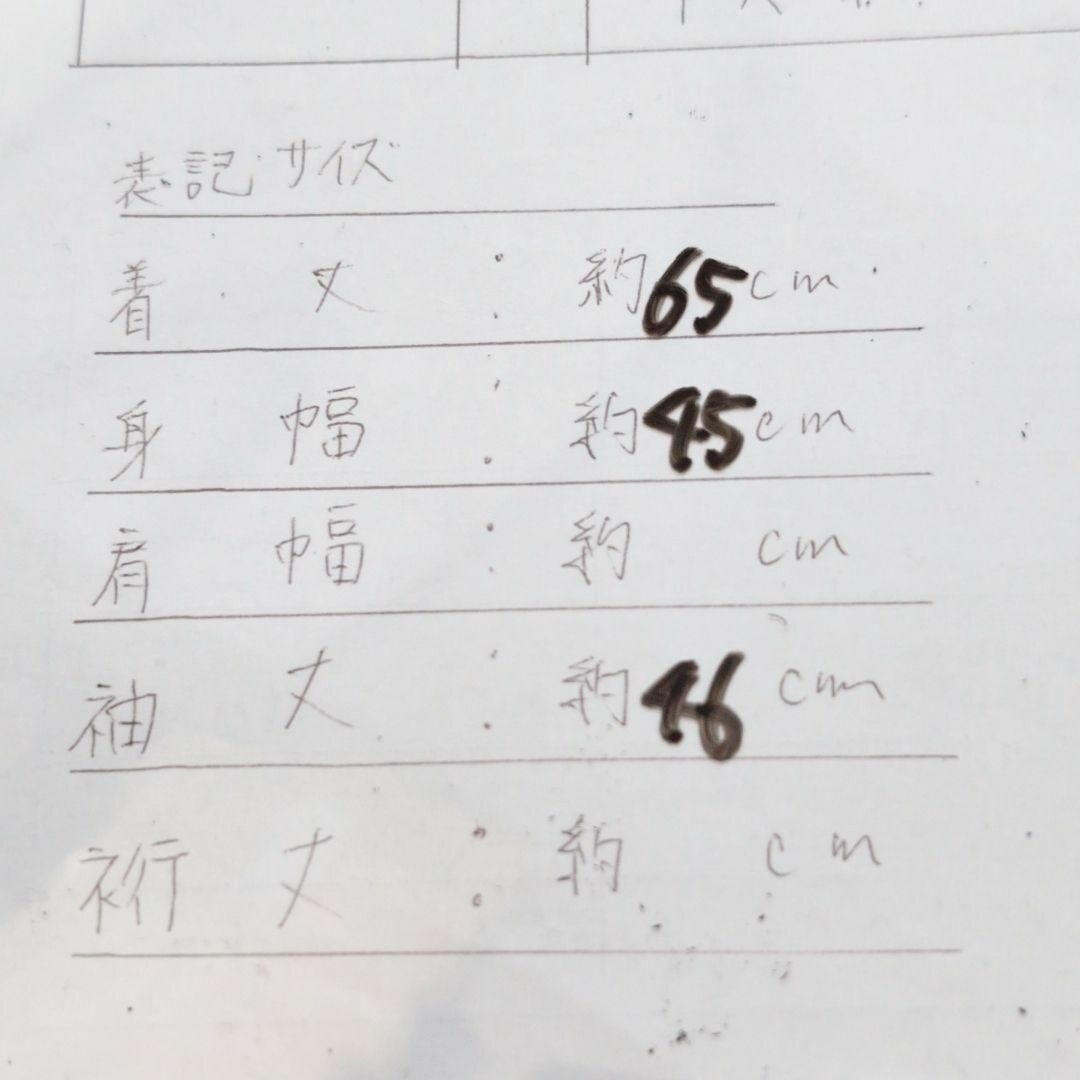 表記サイズ
着 丈 : 約65cm
身 幅 : 約45cm
肩 幅 : 約 cm
袖 丈 : 約46 cm
裄 丈 : 約 cm